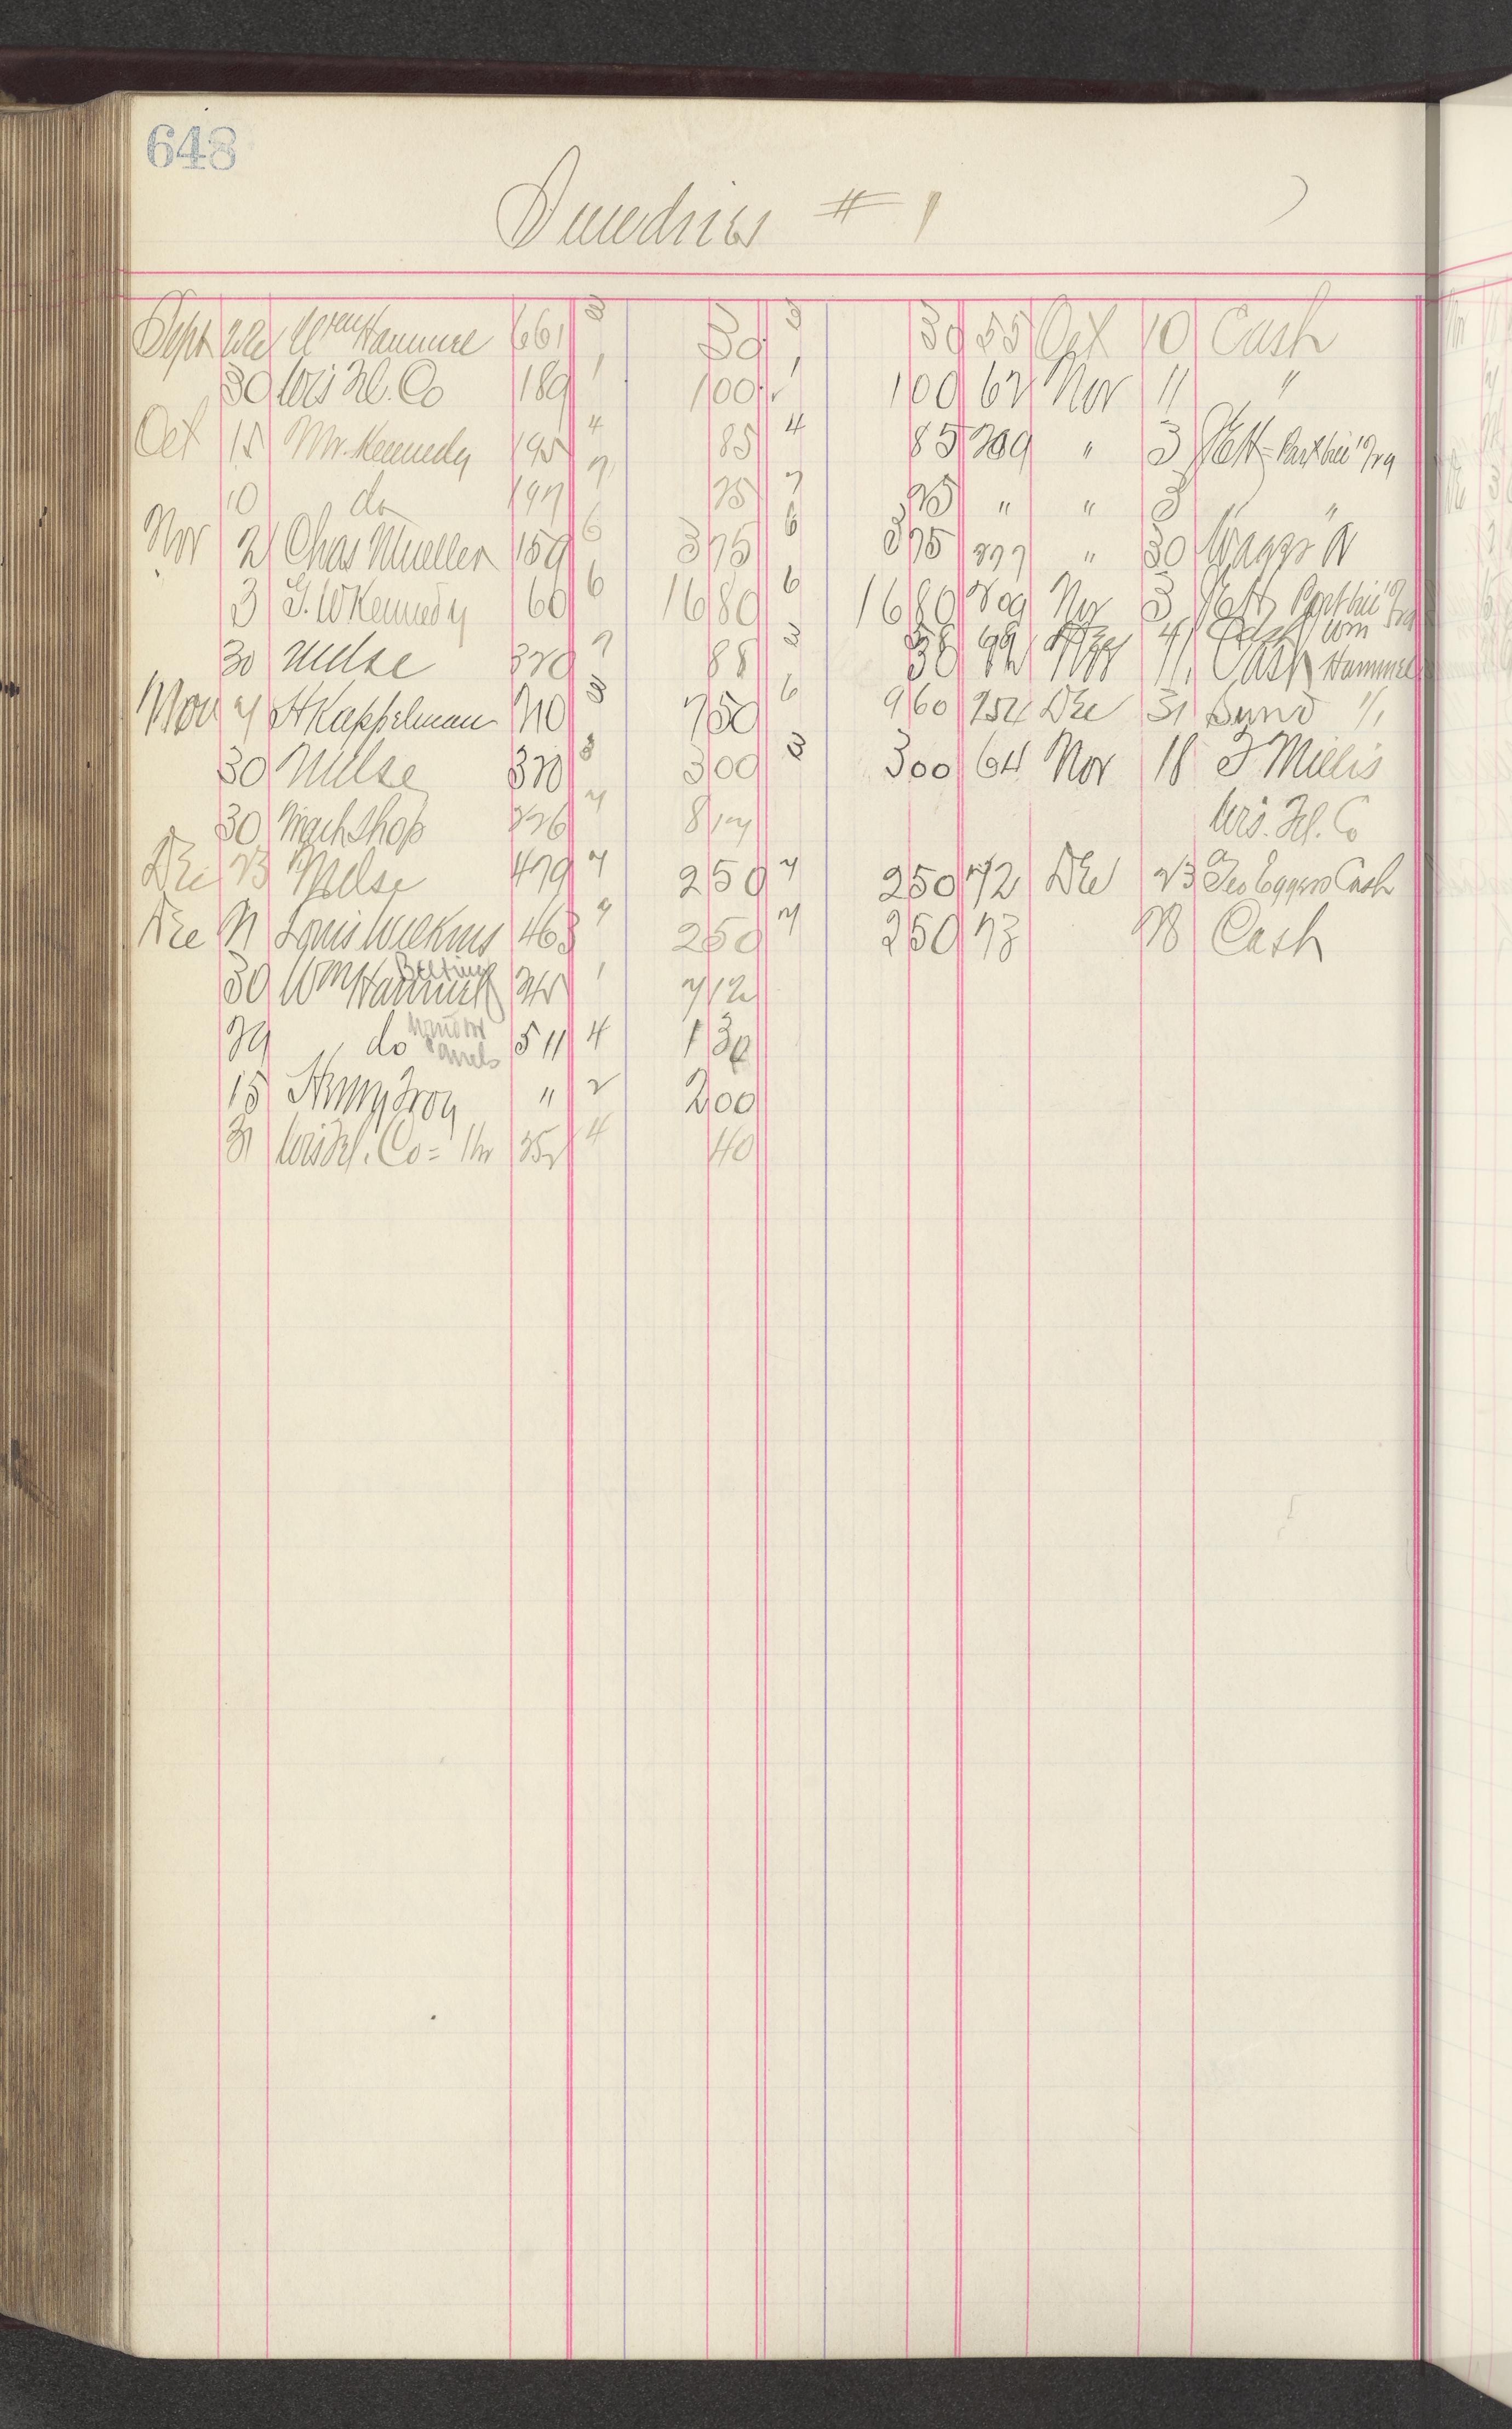 648
Sundries # 1
Sept 22 Wm Hammel 661 3 30 3 30 55 Oct 10 Cash
30 Wis Tel. Co 189 1 100 1 100 62 Nov 11 "
Oct 15 Mr. Kennedy 195 4 85 4 85 209 " 3
10 do 197 7 25 7 25 " " 3 " "
Nov 2 Chas Mueller 159 6 375 6 375 " 30
3 G. W Kennedy 60 6 1680 6 1680 209 Nov 3
30 Mdse 320 7 88 3 30 Cash Wm Hammel
Nov 7 H Kappelman 710 3 750 6 960 254 Dec 31 Sund
30 Mdse 320 3 300 3 300 64 Nov 18 J Millis
30 Mach Shop 226 7 817 Wis. Tel. Co
Dec 23 Mdse 479 7 250 7 250 72 Dec 23 Geo Eggers Cash
Dec Louis Wilkins 463 7 250 7 250 73 28 Cash
30 Wm Hammel Belting 1 712
29 do Window Panels 511 4 130
15 Henry Troy " 2 200
31 Wis Tel. Co = 252 4 40